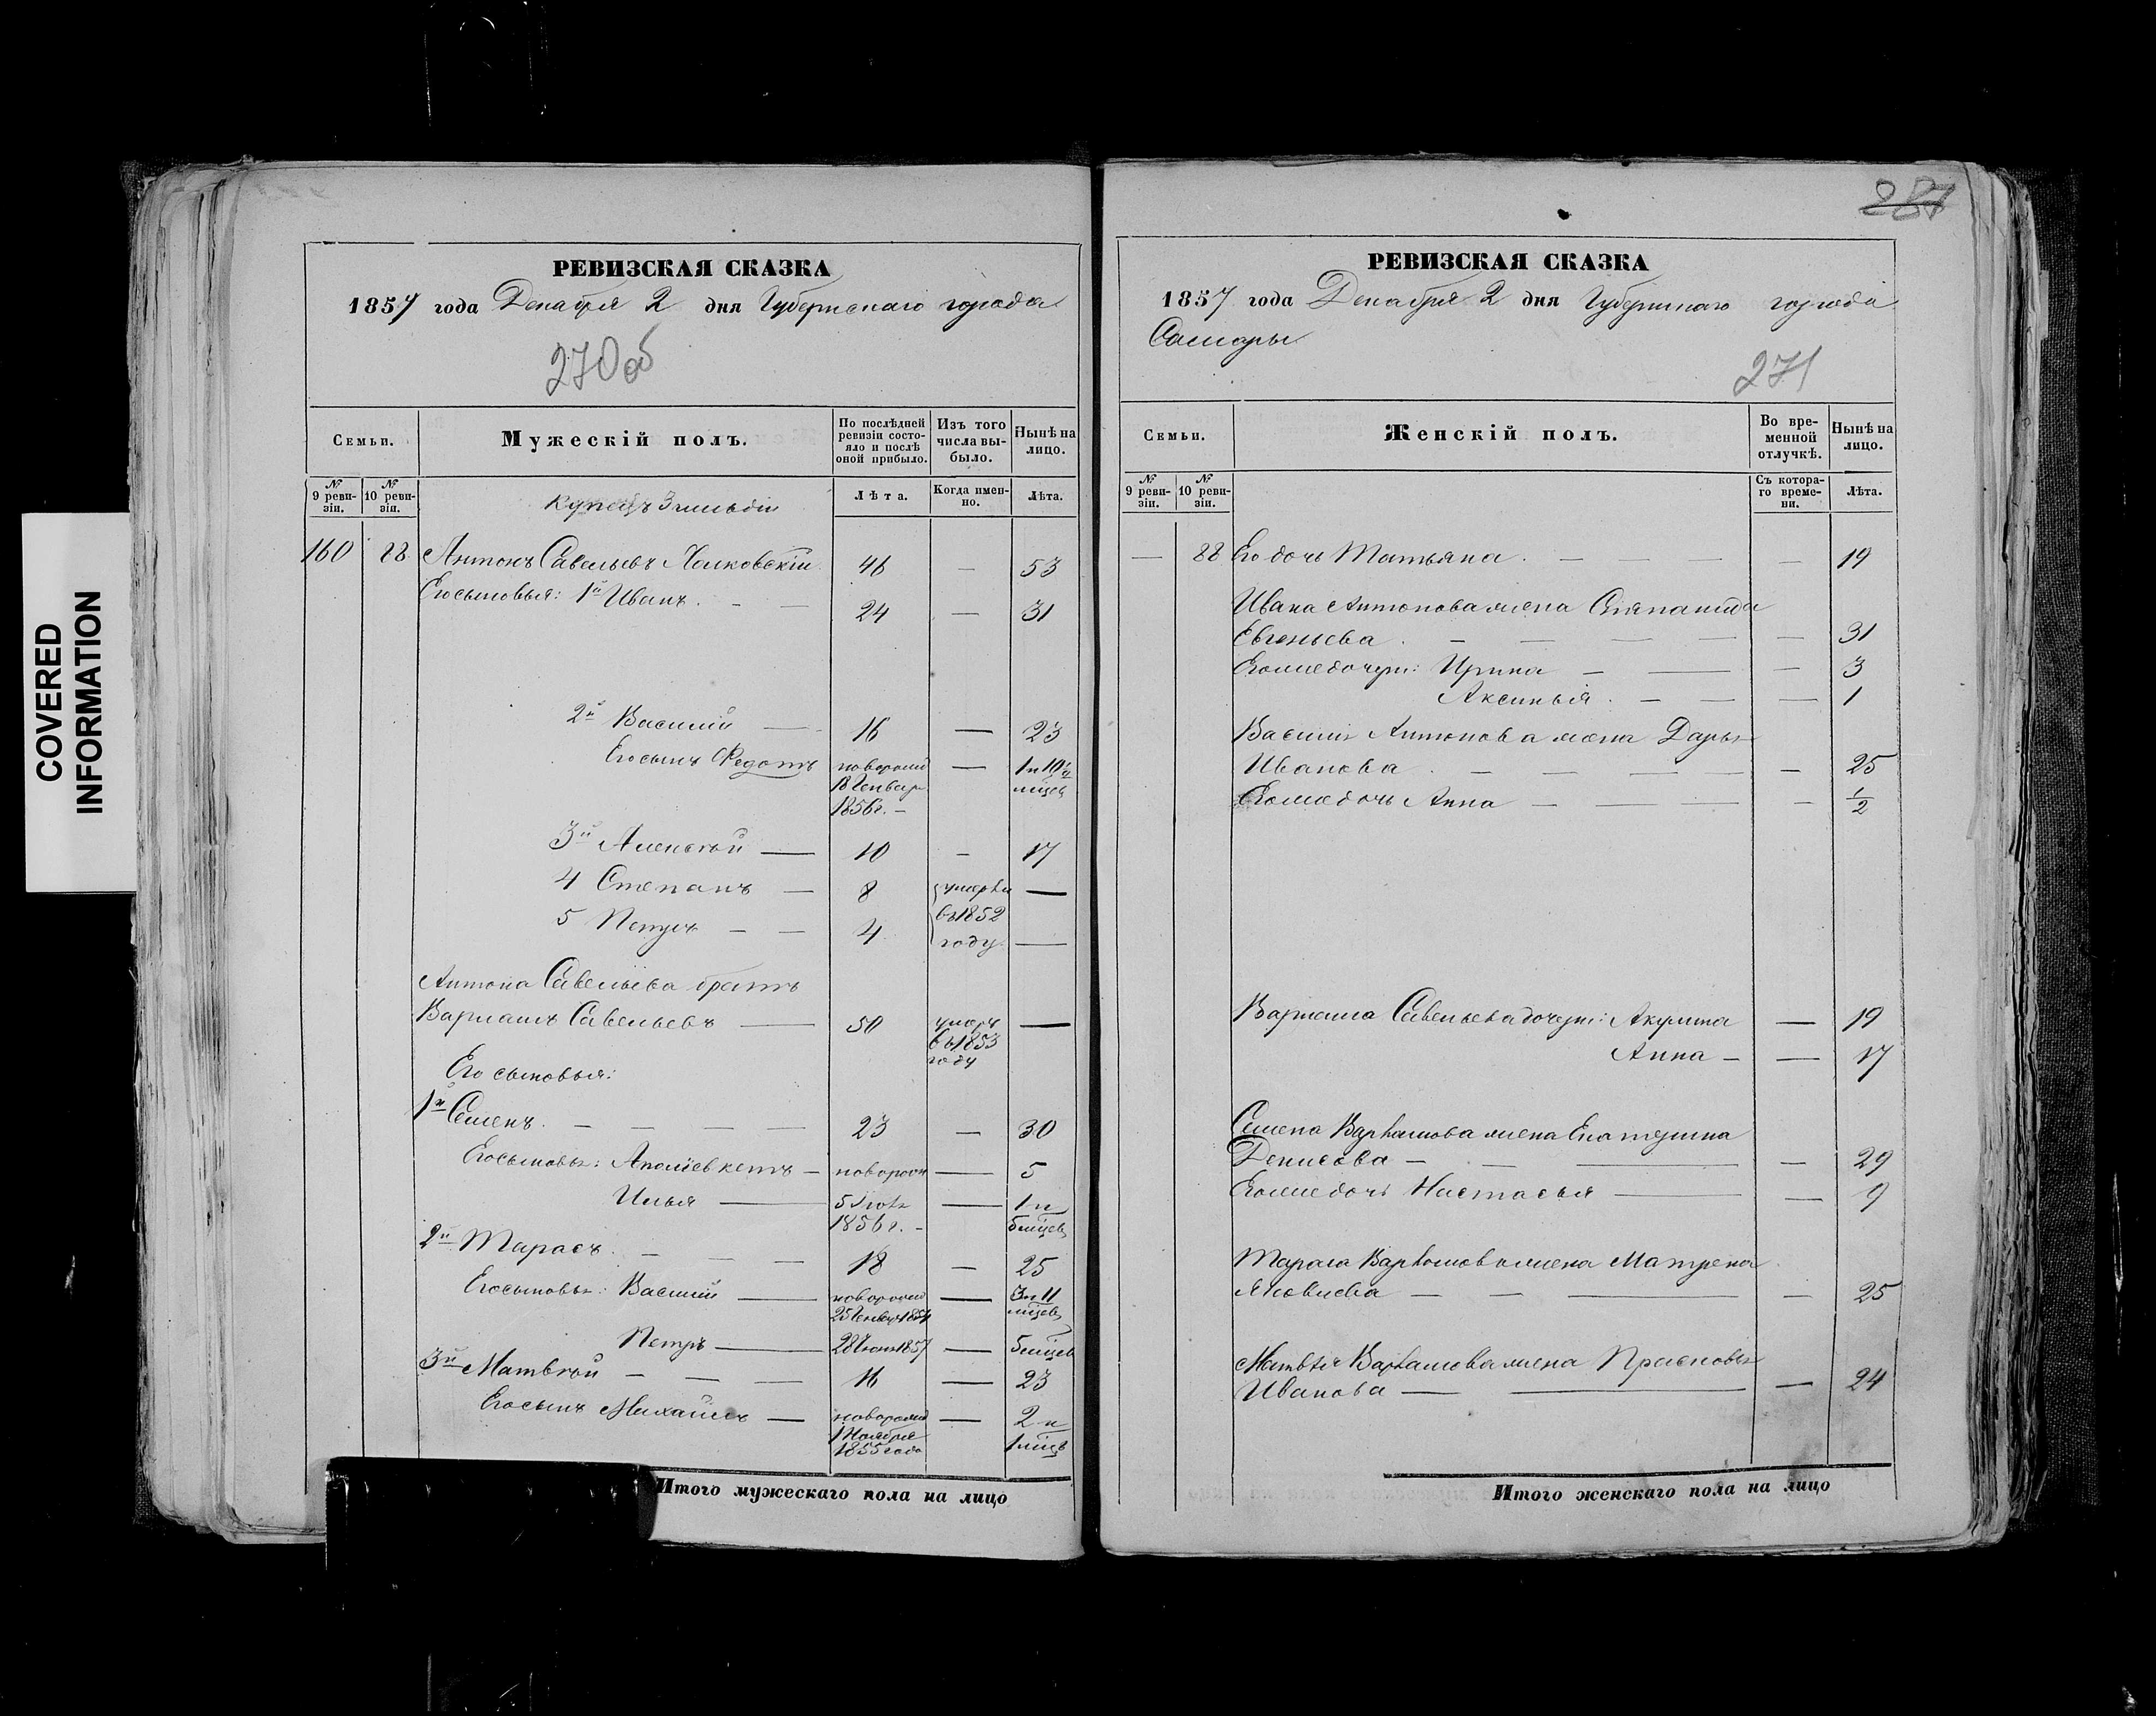 COVERED
INFORMATION
РЕВИЗСКАЯ СКАЗКА
1857 года Декабря 2 дня Губернскаго города
270об
Семьи.
Мужескій полъ.
По послѣдней ревизіи состояло и послѣ оной прибыло.
Изъ того числа выбыло.
Нынѣ на лицо.
№ 9 ревизіи.
№ 10 ревизіи.
Лѣта.
Когда именно.
Лѣта.
Купецъ 3 гильдіи
160 88 Антонъ Савельевъ 46 — 53
Его сыновья: 1й Иванъ. — — 24 — 31
2й Василій — 16 — 23
Его сынъ Федотъ новорожд — 1 и 10½
В Генвар мѣсяц
1856г. —
3й Алексѣй — 10 - 17
4 Степанъ — 8 умерли —
въ 1852
5 Петръ — — 4 году —
Антона Савельева братъ
Варламъ Савельевъ — 50 умеръ —
въ 1853
году
Его сыновья:
1й Семенъ. — — — — 23 — 30
Его сыновья: — новорож — 5
Илья — 5 Іюля — 1 и
1856 г. - 5 мѣсяц
2й Тарасъ. — — — 18 — 25
Его сыновья: Василій — новорожд — 3 и 11
25 Генвар 1854 мѣсяц
Петръ — 28 Іюня 1857 — 5 мѣсяц
3й Матвѣй — — — 16 — 23
Его сынъ Михаилъ — новорожд — 2 и
1 Ноября 1 мѣсяц
1855 года
Итого мужескаго пола на лицо
287
РЕВИЗСКАЯ СКАЗКА
1857 года Декабря 2 дня Губернскаго города
Самары
271
Семьи.
Женскій полъ.
Во временной отлучкѣ.
Нынѣ на лицо.
№ 9 ревизіи.
№ 10 ревизіи.
Съ котораго времени.
Лѣта.
— 88 Его дочь Татьяна. — — — — 19
Ивана Антонова жена Степанида
Евгеньева. — — — — — 31
Его же дочери: Ирина — — — 3
Аксинья. — — — 1
Василія Антонова жена Дарья
Иванова. — — — — — 25
Его же дочь Анна — — — — ½
Варлама Савельева дочери: Акулина — 19
Анна — — 17
Семена Варламова жена Екатерина
Денисова — — — — 29
Его же дочь Настасья — — 9
Тараса Варламова жена Матрена
Яковлева — — — — 25
Матвѣя Варламова жена Прасковья
Иванова — — — 24
Итого женскаго пола на лицо